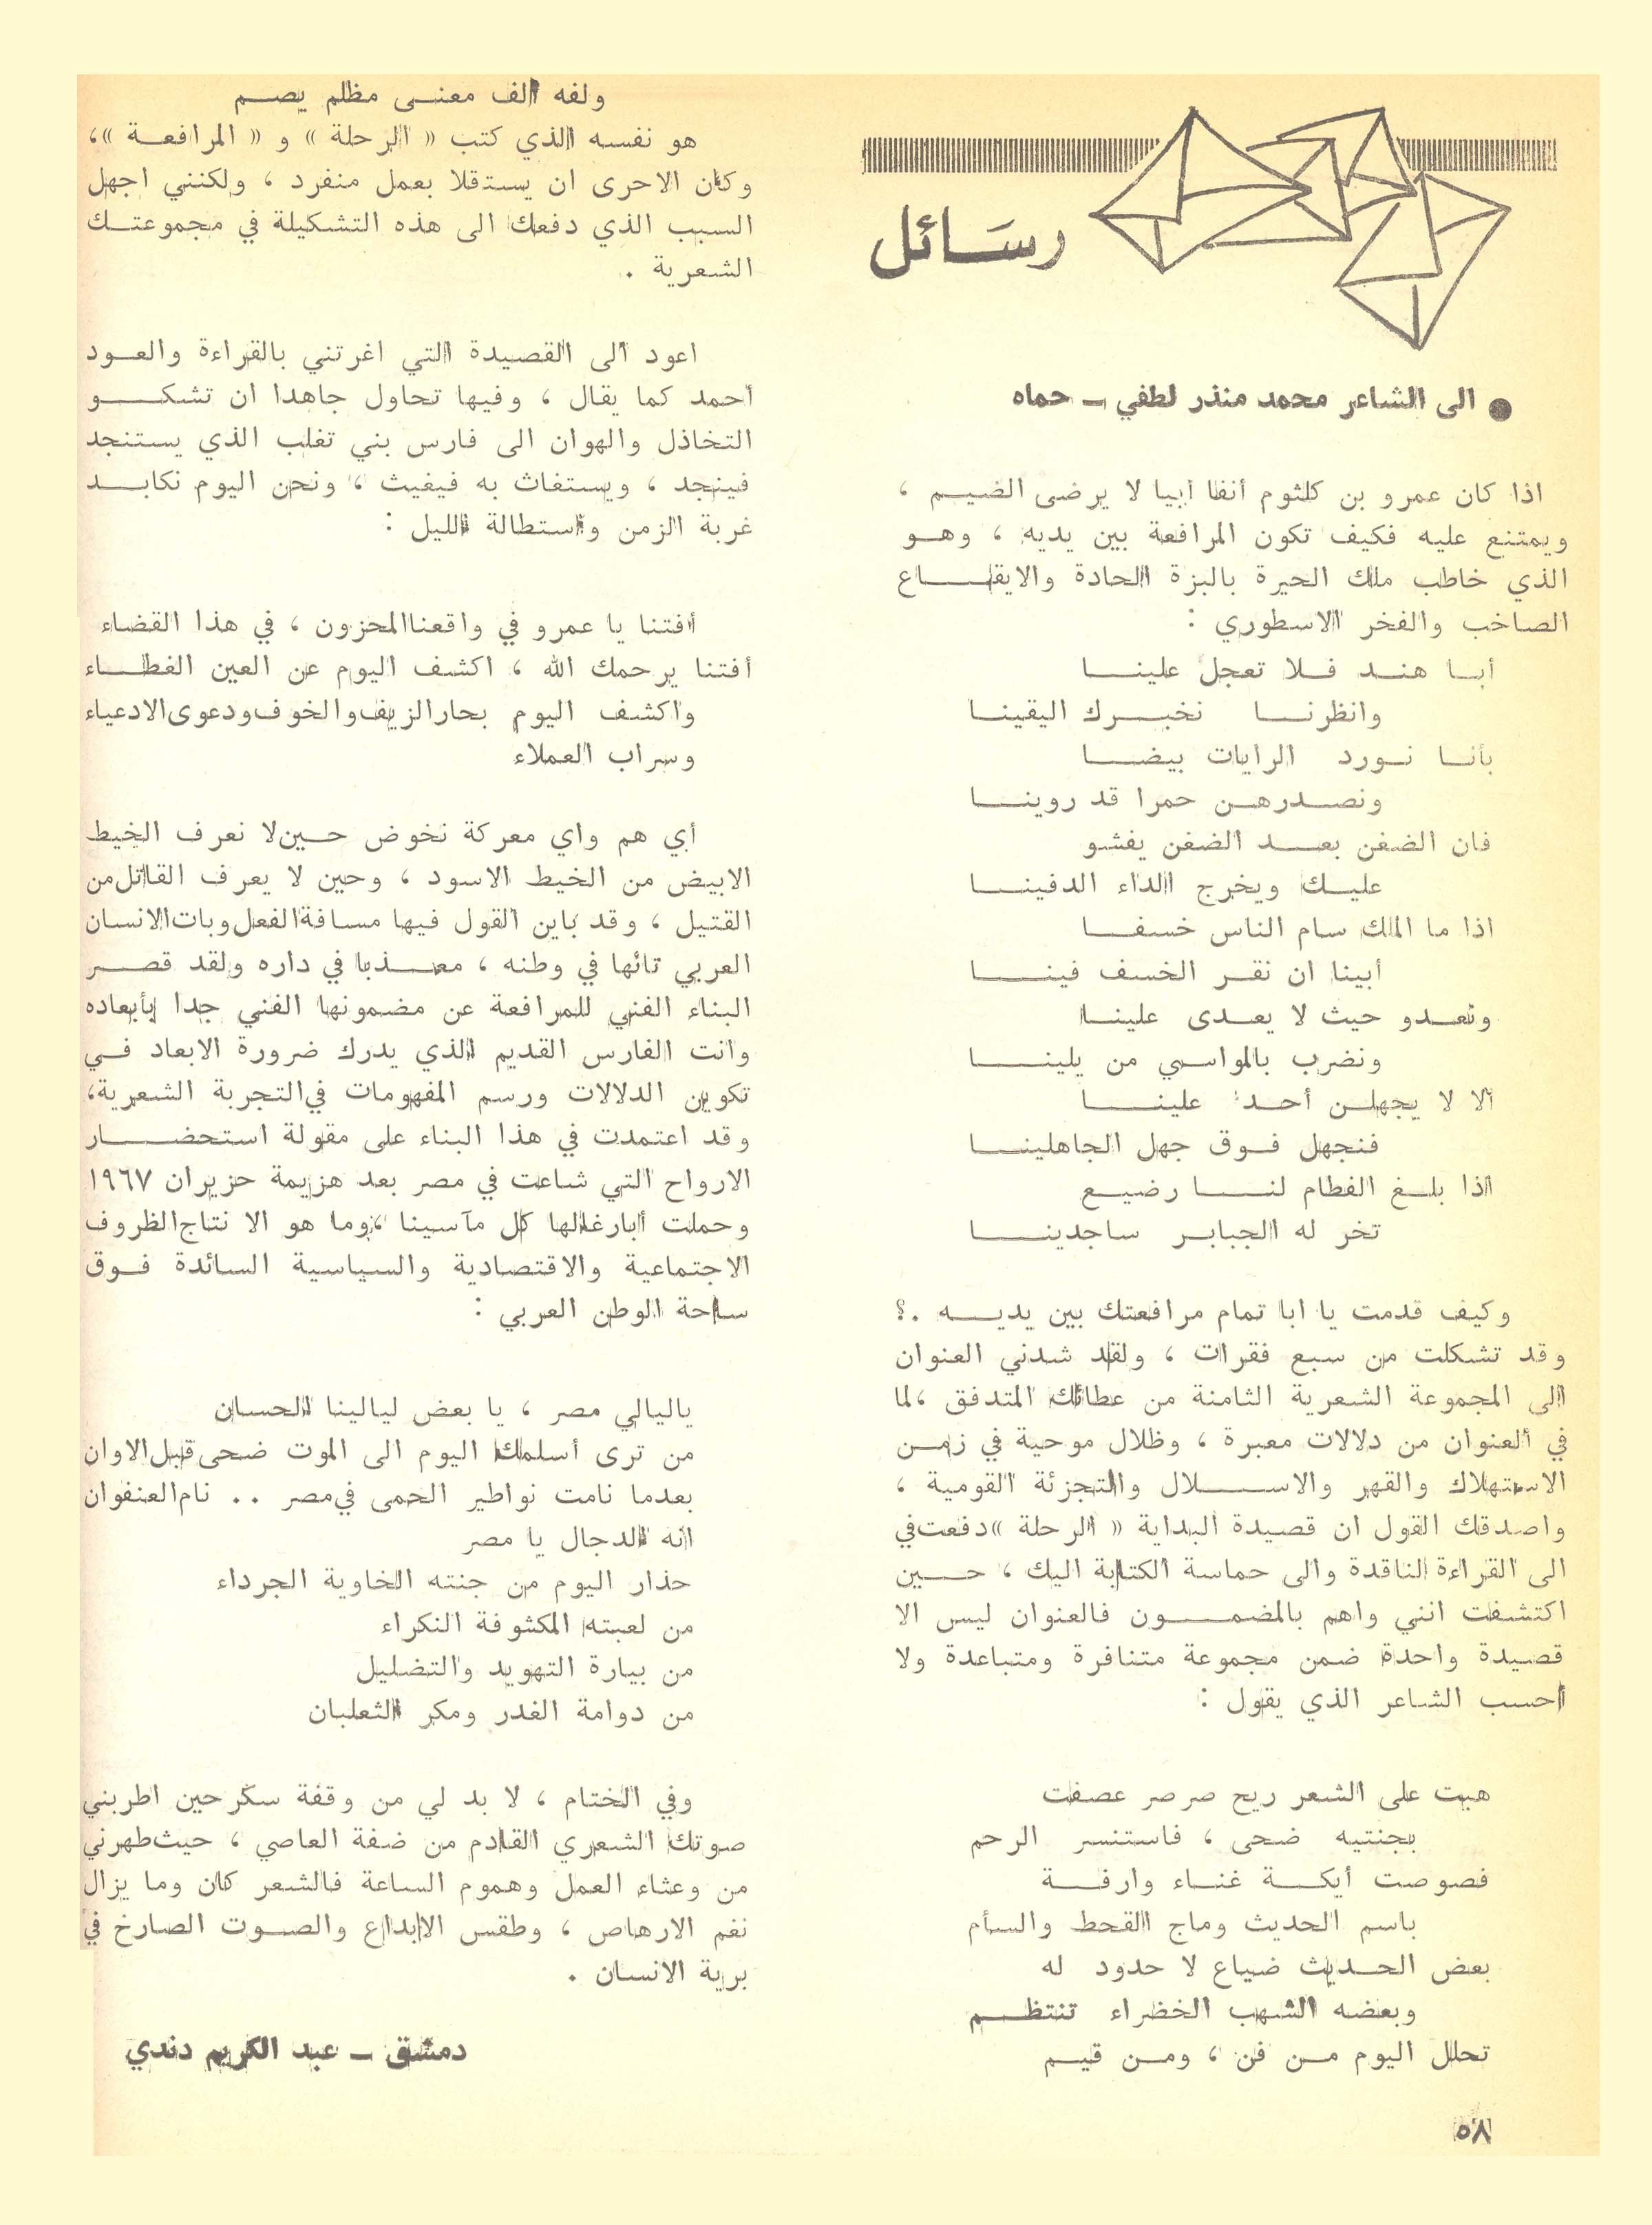 رسائل
● الى الشاعر محمد منذر لطفي ــ حماه
اذا كان عمرو بن كلثوم أنفا أبيا لا يرضى الضيم ،
ويمتنع عليه فكيف تكون المرافعة بين يديه ، وهو
الذي خاطب ملك الحيرة بالبزة الحادة والايقاع
الصاخب والفخر الاسطوري :
أبا هند فلا تعجل علينا
وانظرنا نخبرك اليقينا
بأنا نورد الرايات بيضا
ونصدرهن حمرا قد روينا
فان الضغن بعد الضغن يفشو
عليك ويخرج الداء الدفينا
اذا ما الملك سام الناس خسفا
أبينا ان نقر الخسف فينا
ونعدو حيث لا يعدى علينا
ونضرب بالمواسي من يلينا
ألا لا يجهلن أحد علينا
فنجهل فوق جهل الجاهلينا
اذا بلغ الفطام لنا رضيع
تخر له الجبابر ساجدينا
وكيف قدمت يا ابا تمام مرافعتك بين يديه .؟
وقد تشكلت من سبع فقرات ، ولقد شدني العنوان
الى المجموعة الشعرية الثامنة من عطائك المتدفق ،لما
في العنوان من دلالات معبرة ، وظلال موحية في زمن
الاستهلاك والقهر والاسلال والتجزئة القومية ،
واصدقك القول ان قصيدة البداية « الرحلة » دفعت في
الى القراءة الناقدة والى حماسة الكتابة اليك ، حين
اكتشفت انني واهم بالمضمون فالعنوان ليس الا
قصيدة واحدة ضمن مجموعة متنافرة ومتباعدة ولا
احسب الشاعر الذي يقول :
هبت على الشعر ريح صرصر عصفت
بجنتيه ضحى ، فاستنسر الرحم
فصوصت أيكة غناء وارفة
باسم الحديث وماج القحط والسأم
بعض الحديث ضياع لا حدود له
وبعضه الشهب الخضراء تنتظم
تحلل اليوم من فن ، ومن قيم
٥٨
ولفه الف معنى مظلم يصم
هو نفسه الذي كتب « الرحلة » و « المرافعة »،
وكان الاحرى ان يستقلا بعمل منفرد ، ولكنني اجهل
السبب الذي دفعك الى هذه التشكيلة في مجموعتك
الشعرية .
اعود الى القصيدة التي اغرتني بالقراءة والعود
احمد كما يقال ، وفيها تحاول جاهدا ان تشكو
التخاذل والهوان الى فارس بني تغلب الذي يستنجد
فينجد ، ويستغاث به فيغيث ، ونحن اليوم نكابد
غربة الزمن واستطالة الليل :
أفتنا يا عمرو في واقعنا المحزون ، في هذا القضاء
أفتنا يرحمك الله ، اكشف اليوم عن العين الغطاء
واكشف اليوم بحار الزيف والخوف ودعوى الادعياء
وسراب العملاء
أي هم واي معركة نخوض حين لا نعرف الخيط
الابيض من الخيط الاسود ، وحين لا يعرف القاتل من
القتيل ، وقد باين القول فيها مسافة الفعل وبات الانسان
العربي تائها في وطنه ، معذبا في داره ولقد قصر
البناء الفني للمرافعة عن مضمونها الفني جدا بأبعاده
وانت الفارس القديم الذي يدرك ضرورة الابعاد في
تكوين الدلالات ورسم المفهومات في التجربة الشعرية،
وقد اعتمدت في هذا البناء على مقولة استحضار
الارواح التي شاعت في مصر بعد هزيمة حزيران ١٩٦٧
وحملت أبارغالها كل مآسينا ،وما هو الا نتاج الظروف
الاجتماعية والاقتصادية والسياسية السائدة فوق
ساحة الوطن العربي :
ياليالي مصر ، يا بعض ليالينا الحسان
من ترى أسلمك اليوم الى الموت ضحى قبل الاوان
بعدما نامت نواطير الحمى في مصر .. نام العنفوان
انه الدجال يا مصر
حذار اليوم من جنته الخاوية الجرداء
من لعبته المكشوفة النكراء
من بيارة التهويد والتضليل
من دوامة الغدر ومكر الثعلبان
وفي الختام ، لا بد لي من وقفة سكر حين اطربني
صوتك الشعري القادم من ضفة العاصي ، حيث طهرني
من وعثاء العمل وهموم الساعة فالشعر كان وما يزال
نغم الارهاص ، وطقس الابداع والصوت الصارخ في
برية الانسان .
دمشق ــ عبد الكريم دندي